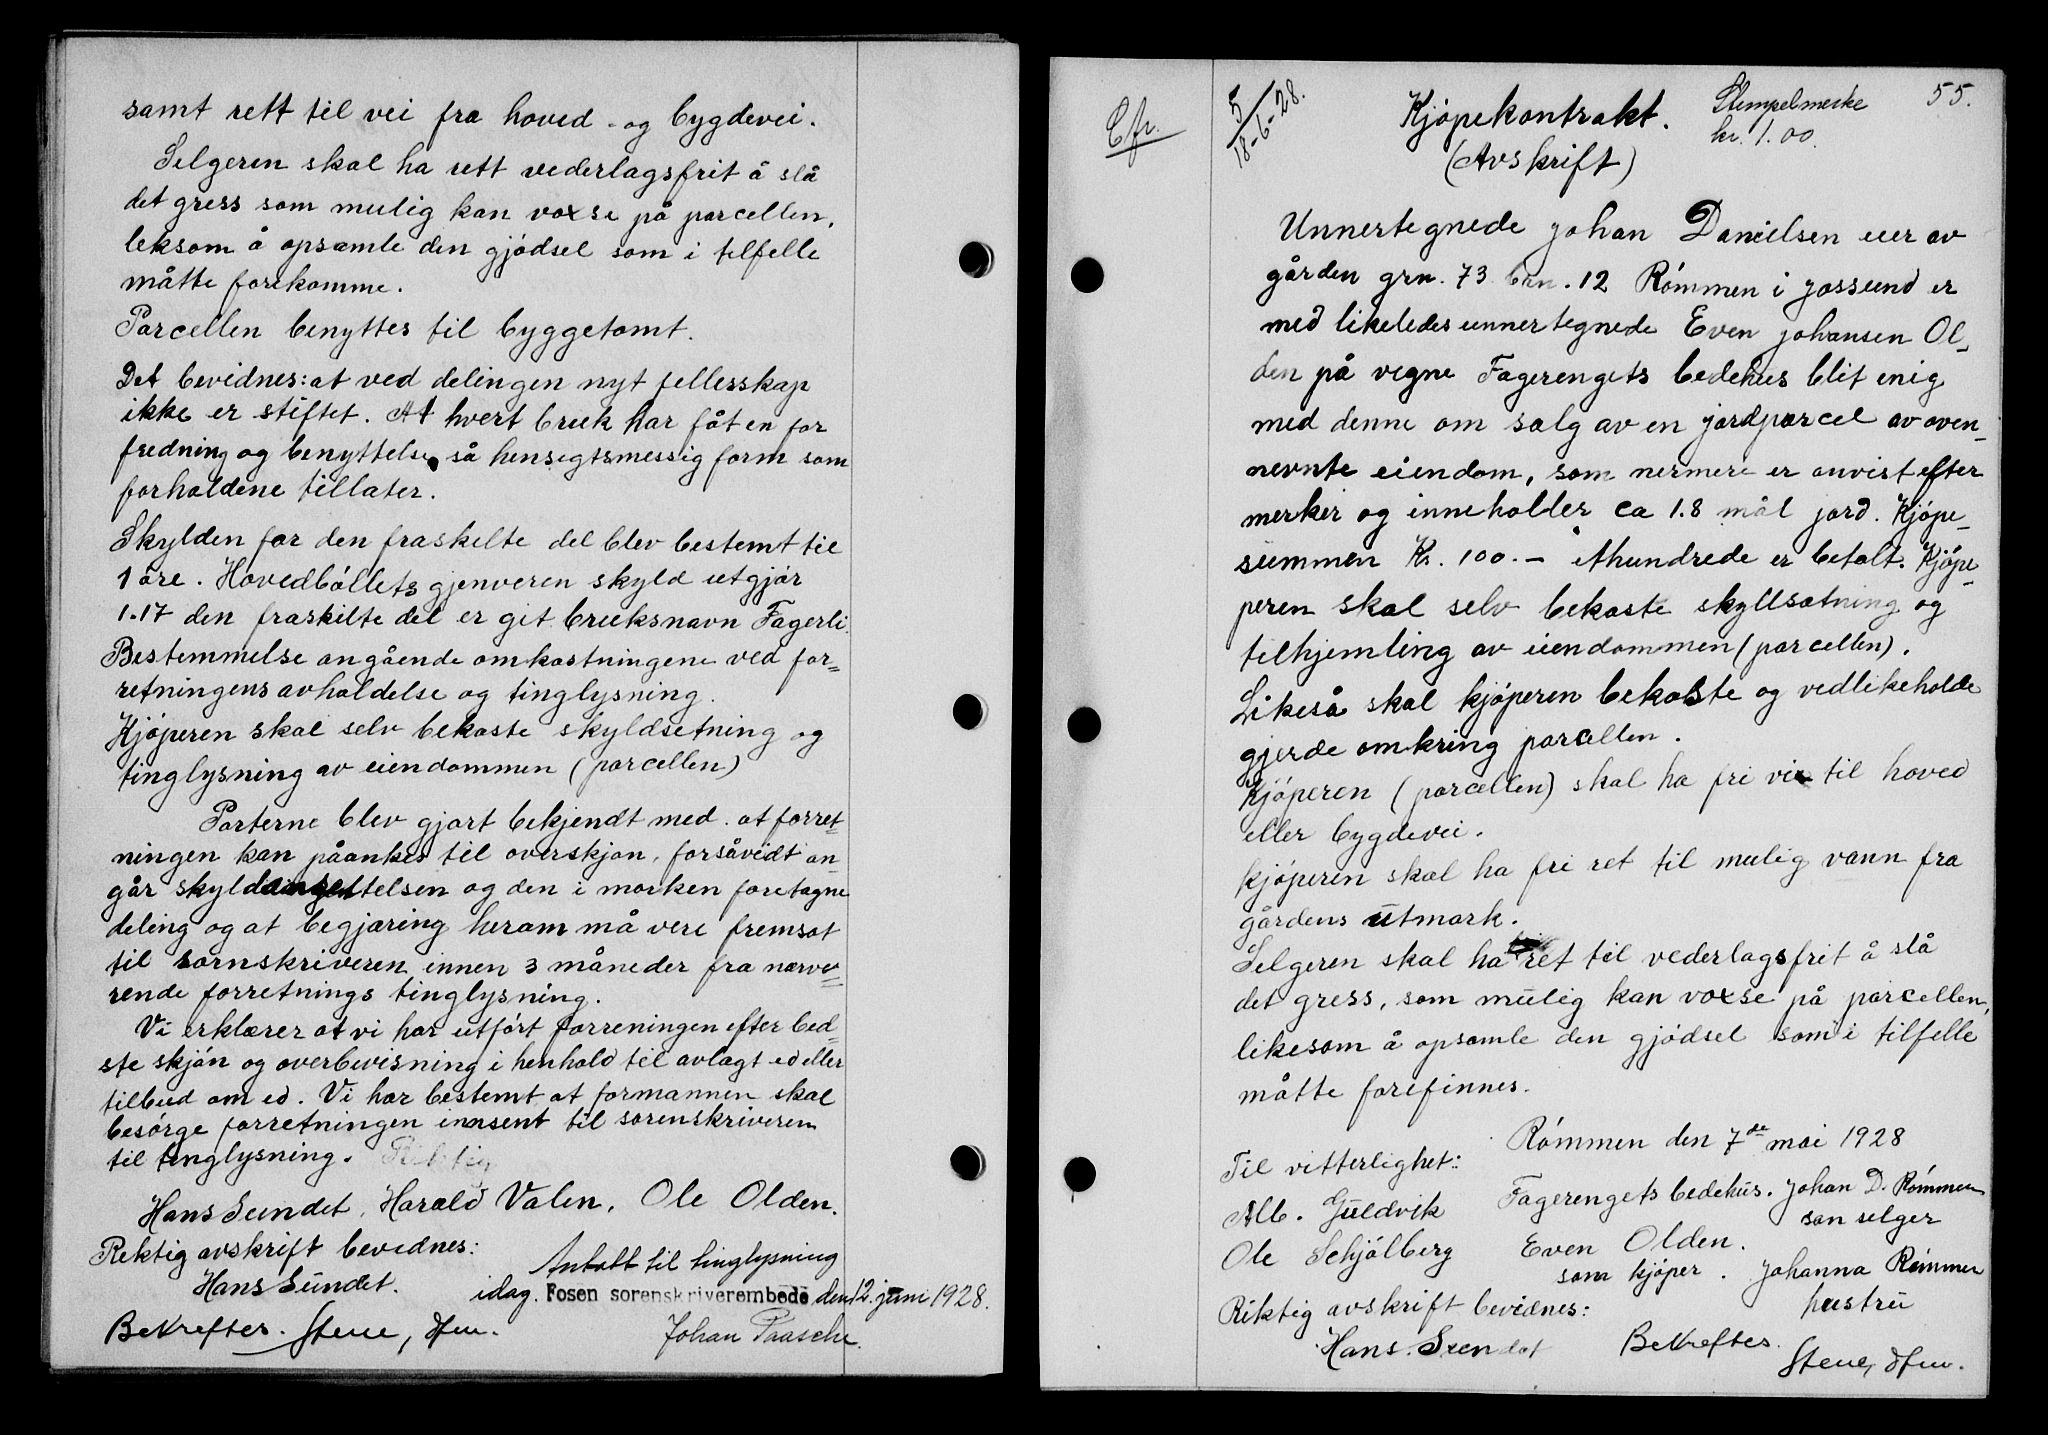 samt rett til vei fra hoved- og bygdevei.
Selgeren skal ha rett vederlagsfrit å slå
det gress som mulig kan vokse på parcellen,
leksom å opsamle den gjödsel som i tilfelle
måtte forekomme.
Parcellen benyttes til byggetomt.
Det bevidnes: at ved delingen nyt fellesskap
ikke er stiftet. At hvert bruk har fåt en for
fredning og benyttelse så hensigtsmessig form som
forholdene tillater.
Skylden for den fraskelte del blev bestemt til
1 øre. Hovedböllets gjenveren skyld utgjör
1.17 den fraskilte del er git bruksnavn Fagerli.
Bestemmelse angående omkostningene ved for=
retningens avholdelse og tinglysning.
Kjöperen skal selv bekoste skyldsetning og
tinglysning av eiendommen (parcellen)
Parterne blev gjort bekjendt med at forret=
ningen kan påankes til overskjøn, forsåvidt an=
går skyldansettelsen og den i marken foretagne
deling og at begjæring herom må vere fremsat
til sornskriveren innen 3 måneder fra nærve=
rende forretnings tinglysning.
Vi erklærer at vi har utfört forreningen efter bed=
ste skjön og overbevisning i henhold til avlagt ed eller
tilbud om ed. Vi har bestemt at formannen skal
besörge forretningen innsent til sorenskriveren
til tinglysning. Riktig
Hans Sundet, Harald Valen, Ole Olden.
Rektig avskrift bevidnes:
Hans Sundet.
Antatt til tinglysning
idag. Fosen sorenskriverembede den 12. juni 1928.
Bekrefter. Stene, dfm.
Johan Paasche.
Cfr.
5
18-6-28.
Kjöpekontrakt.
(Avskrift)
Stempelmerke
kr. 1.00.
55.
Unnertegnede Johan Danielsen eier av
gården grn. 73 brn. 12 Römmen i Jøssund er
med likeledes unnertegnede Even Johansen Ol-
den på vegne Fagerengets bedehus blit enig
med denne om salg av en jordparcel av oven-
nevnte eiendom, som nermere er anvist efter
merker og inneholder ca 1.8 mål jord. Kjöpe-
summen Kr. 100.- ethundrede er betalt. Kjöpe-
peren skal selv bekoste skyllsætning og
tilhjemling av eiendommen (parcellen).
Likeså skal kjöperen bekoste og vedlikeholde
gjerde omkring parcellen.
Kjöperen (parcellen) skal ha fri vei til hoved
eller bygdevei.
Kjöperen skal ha fri ret til mulig vann fra
gårdens utmark.
Selgeren skal ha ret til vederlagsfrit å slå
det gress, som mulig kan vokse på parcellen,
likesom å opsamle den gjödsel som i tilfelle
måtte forefinnes.
Römmen den 7de mai 1928
Til vitterlighet:
Alb. Guldvik
Ole Schjölberg
Fagerengets bedehus. Johan D. Römmen
son selger
Even Olden.
som kjöper. Johanna Römmen
hustru
Riktig avskrift bevidnes:
Hans Sundet
Bekreftes.
Stene, dfm.